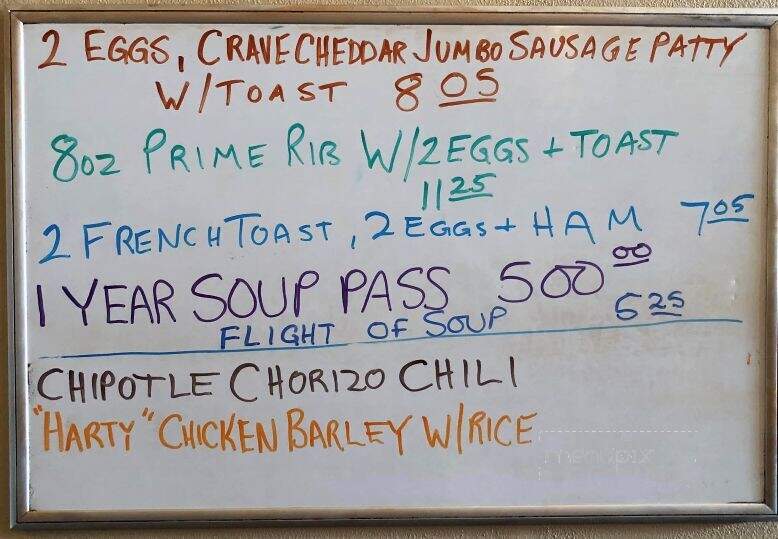 2 EGGS, CRAVE CHEDDAR JUMBO SAUSAGE PATTY
W/TOAST 8 05
8oz PRIME RIB W/2 EGGS + TOAST
11 25
2 FRENCH TOAST, 2 EGGS + HAM 7 05
1 YEAR SOUP PASS 500 00
FLIGHT OF SOUP 6 25
CHIPOTLE CHORIZO CHILI
"HARTY" CHICKEN BARLEY W/RICE
menupix